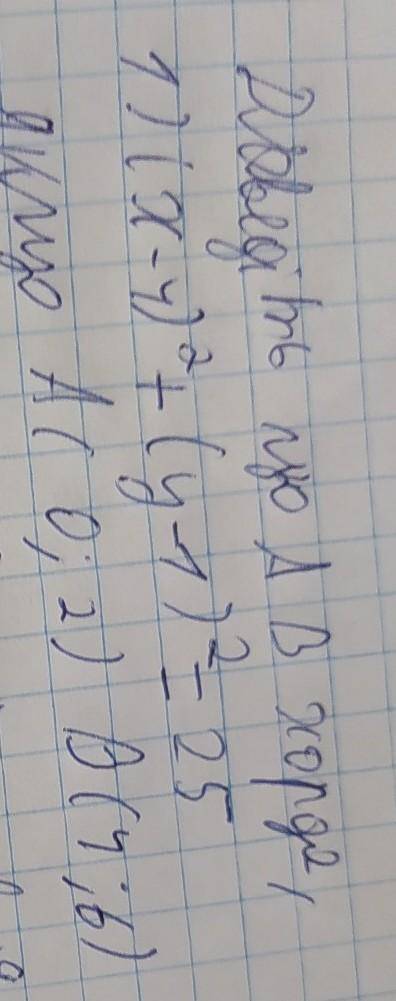 Доведіть що AB хорда,
1) (x-4)² + (y-1)² = 25
якщо A(0; 2) B(4; 6)